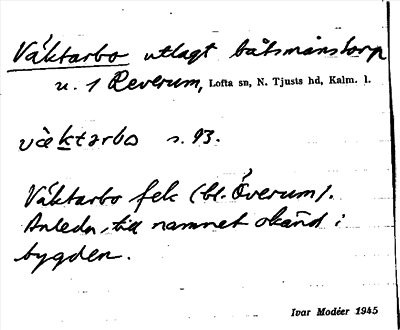 Väktarbo utlagt båtsmanstorp
u. 1 Reverum, Lofta sn, N. Tjusts hd, Kalm. l.
väktarbo s. 93.
Väktarbo fek (bl. Överum).
Anledn. till namnet okänd i
bygden.
Ivar Modéer 1945